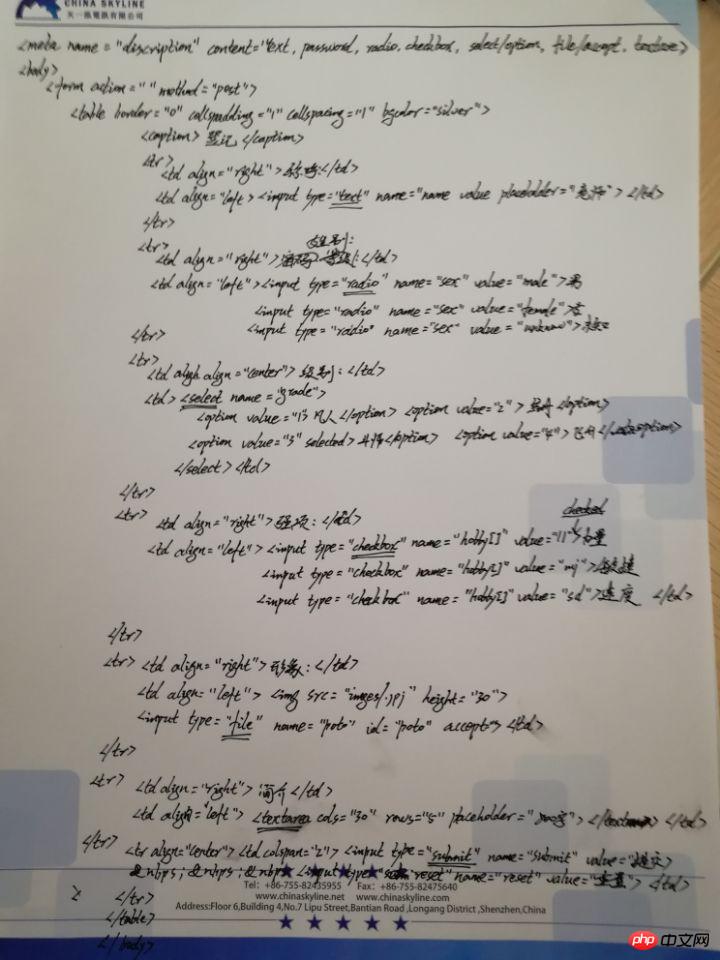 CHINA SKYLINE
天一航電訊有限公司
<meta name="discription" content="text, password, radio, checkbox, select/option, file/accept, textarea>
<body>
<form action=" " method="post">
<table border="0" cellspadding="1" cellspacing="1" bgcolor="silver">
<caption>登记</caption>
<tr>
<td align="right">称呼:</td>
<td align="left><input type="text" name="name value placeholder=" "></td>
</tr>
<tr>
性别:
<td align="right"> </td>
<td align="left"><input type="radio" name="sex" value="male">男
<input type="radio" name="sex" value="female">女
<input type="radio" name="sex" value="unknow">
</tr>
<tr>
<td align="center">级别:</td>
<td><select name="grade">
<option value="1">凡人</option> <option value="2"> <option>
<option value="3" selected> </option> <option value="4"> </option>
</select></td>
</tr>
checked
<tr> <td align="right">强项:</td>
<td align="left"><input type="checkbox" name="hobby[]" value="ll">力量
<input type="checkbox" name="hobby[]" value="mj">敏捷
<input type="checkbox" name="hobby[]" value="sd">速度 </td>
</tr>
<tr> <td align="right">形象:</td>
<td align="left"> <img src="imges/.jpj" height="30">
<input type="file" name="poto" id="poto" accept=></td>
</tr>
<tr> <td align="right">简介</td>
<td align="left"> <textarea cols="30" rows="5" placeholder=" "> </td>
</tr> <tr align="center"><td colspan="2"> <input type="submit" name="submit" value="提交
&nbps;&nbps;&nbps <input type="reset" name="reset" value="重置"></td>
Tel: +86-755-82435955 Fax: +86-755-82475640
www.chinaskyline.net www.chinaskyline.com
</tr>
Address:Floor 6,Building 4,No.7 Lipu Street,Bantian Road ,Longang District ,Shenzhen,China
</table>
</body>
php 中文网